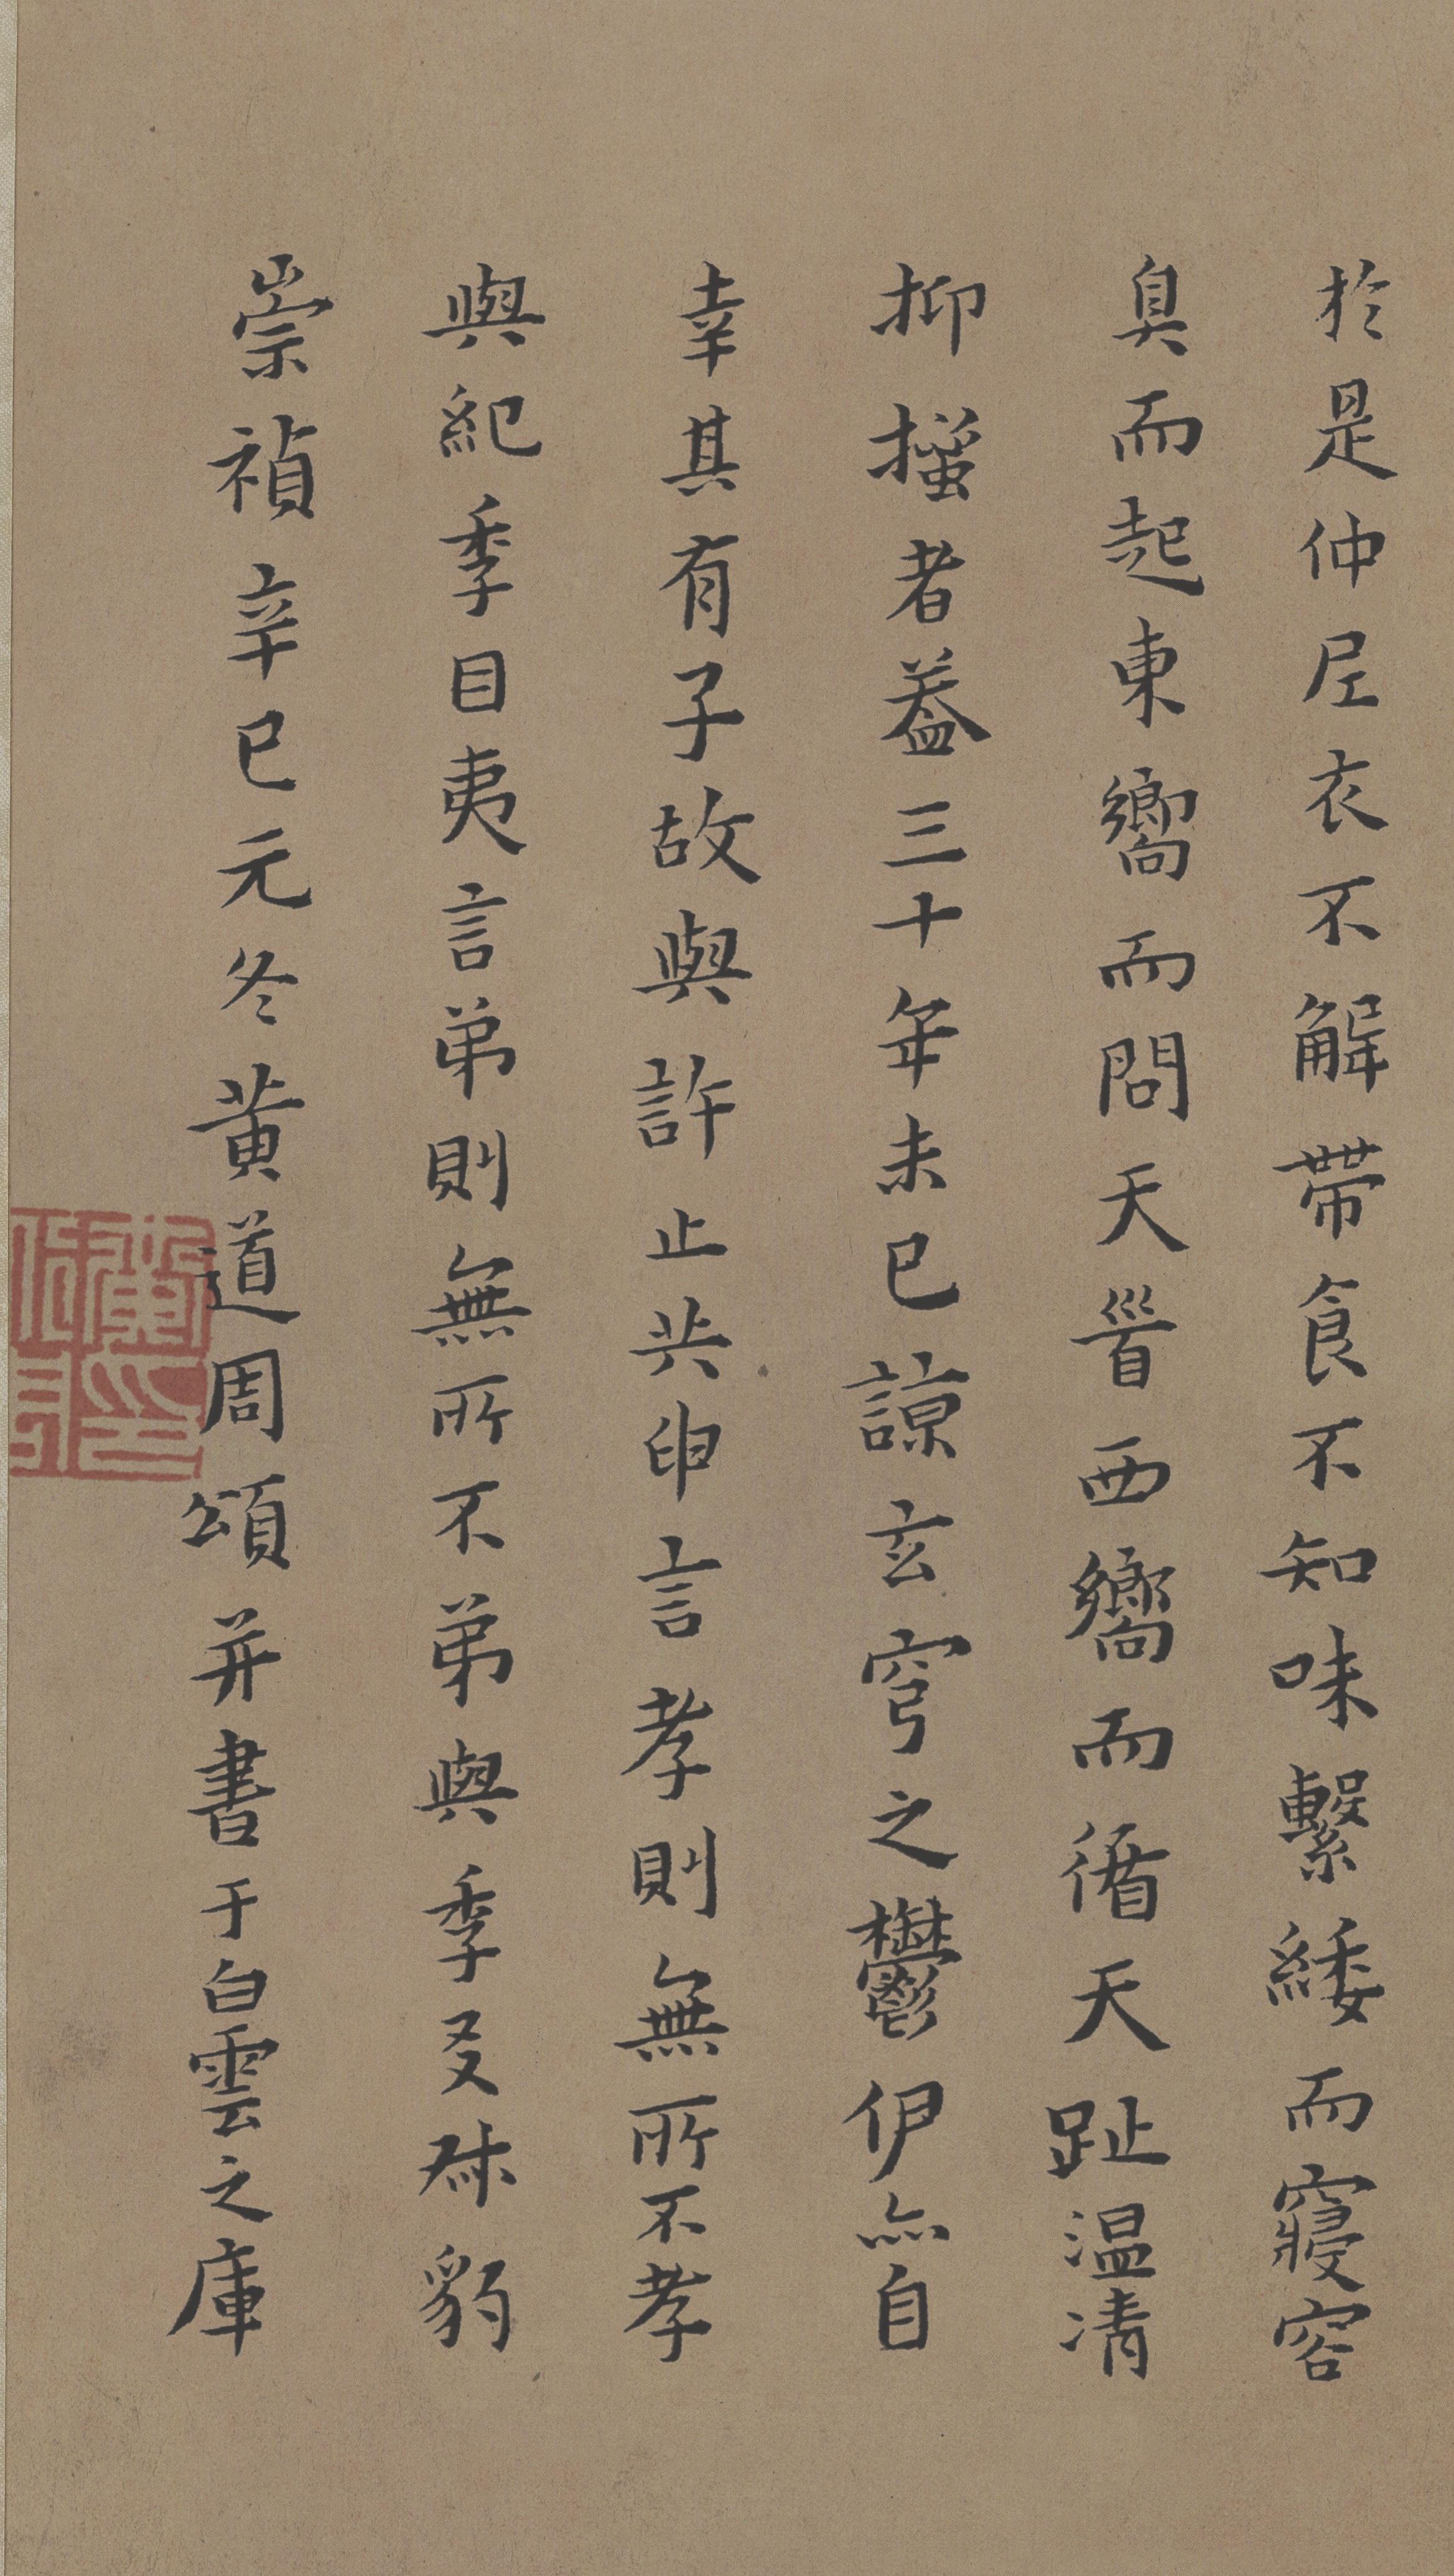 於是仲尼衣不解帶食不知味繫緌而寢容
臭而起東嚮而問天晉西嚮而循天趾温凊
抑搔者葢三十年未已諒玄穹之鬱伊亦自
幸其有子故與許止共申言孝則無所不孝
與紀季目夷言弟則無所不弟與季叐叔豹
崇禎辛巳元冬黃道周頌并書于白雲之庫